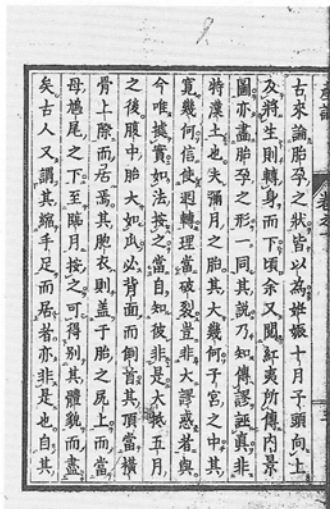 古來論胎孕之狀皆以為姙娠十月子頭向上
及將生則轉身而下頃余又閱紅夷所傳內景
圖亦畫胎孕之形一同其說乃知傳謬誣真非
特漢土也夫彌月之胎其大幾何子宮之中其
寬幾何信使迴轉理當破裂豈非大謬惑者與
今唯據實如法按之當自知彼非是大抵五月
之後腹中胎大如瓜必背面而倒首其頂當橫
骨上際而居焉其胞衣則蓋于胎之尻上而當
母鳩尾之下至臨月按之可得別其體貌而盡
矣古人又謂其縮手足而居者亦非是也自其